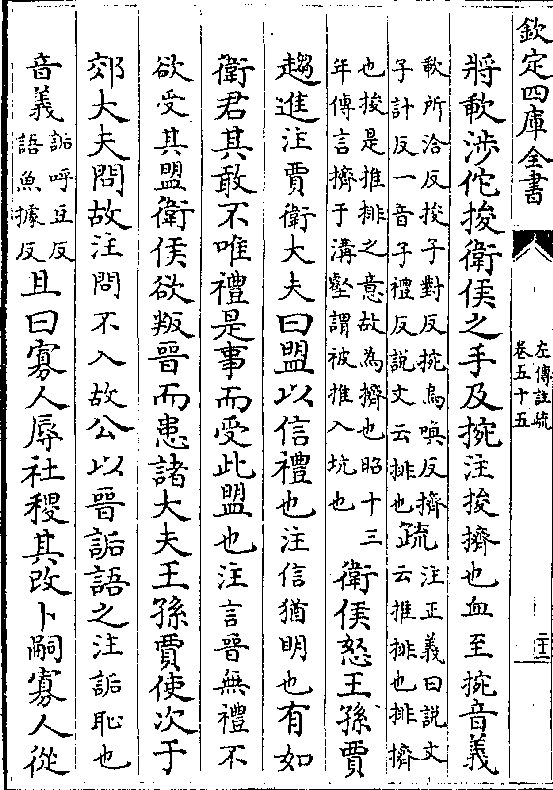 欽定四庫全書
左傳註疏
卷五十五
二十
將歃涉佗捘衛侯之手及捥注捘擠也血至捥音義
歃所洽反捘子對反捥烏喚反擠
子計反一音子禮反説文云排也疏注正義曰説文
云推排也排擠
也捘是推排之意故為擠也昭十三
年傳言擠于溝壑謂被推入坑也衛侯怒王孫賈
趨進注賈衛大夫曰盟以信禮也注信猶明也有如
衛君其敢不唯禮是事而受此盟也注言晉無禮不
欲受其盟衛侯欲叛晉而患諸大夫王孫賈使次于
郊大夫問故注問不入故公以晉詬語之注詬恥也
音義詬呼豆反
語魚據反且曰寡人辱社稷其改卜嗣寡人從